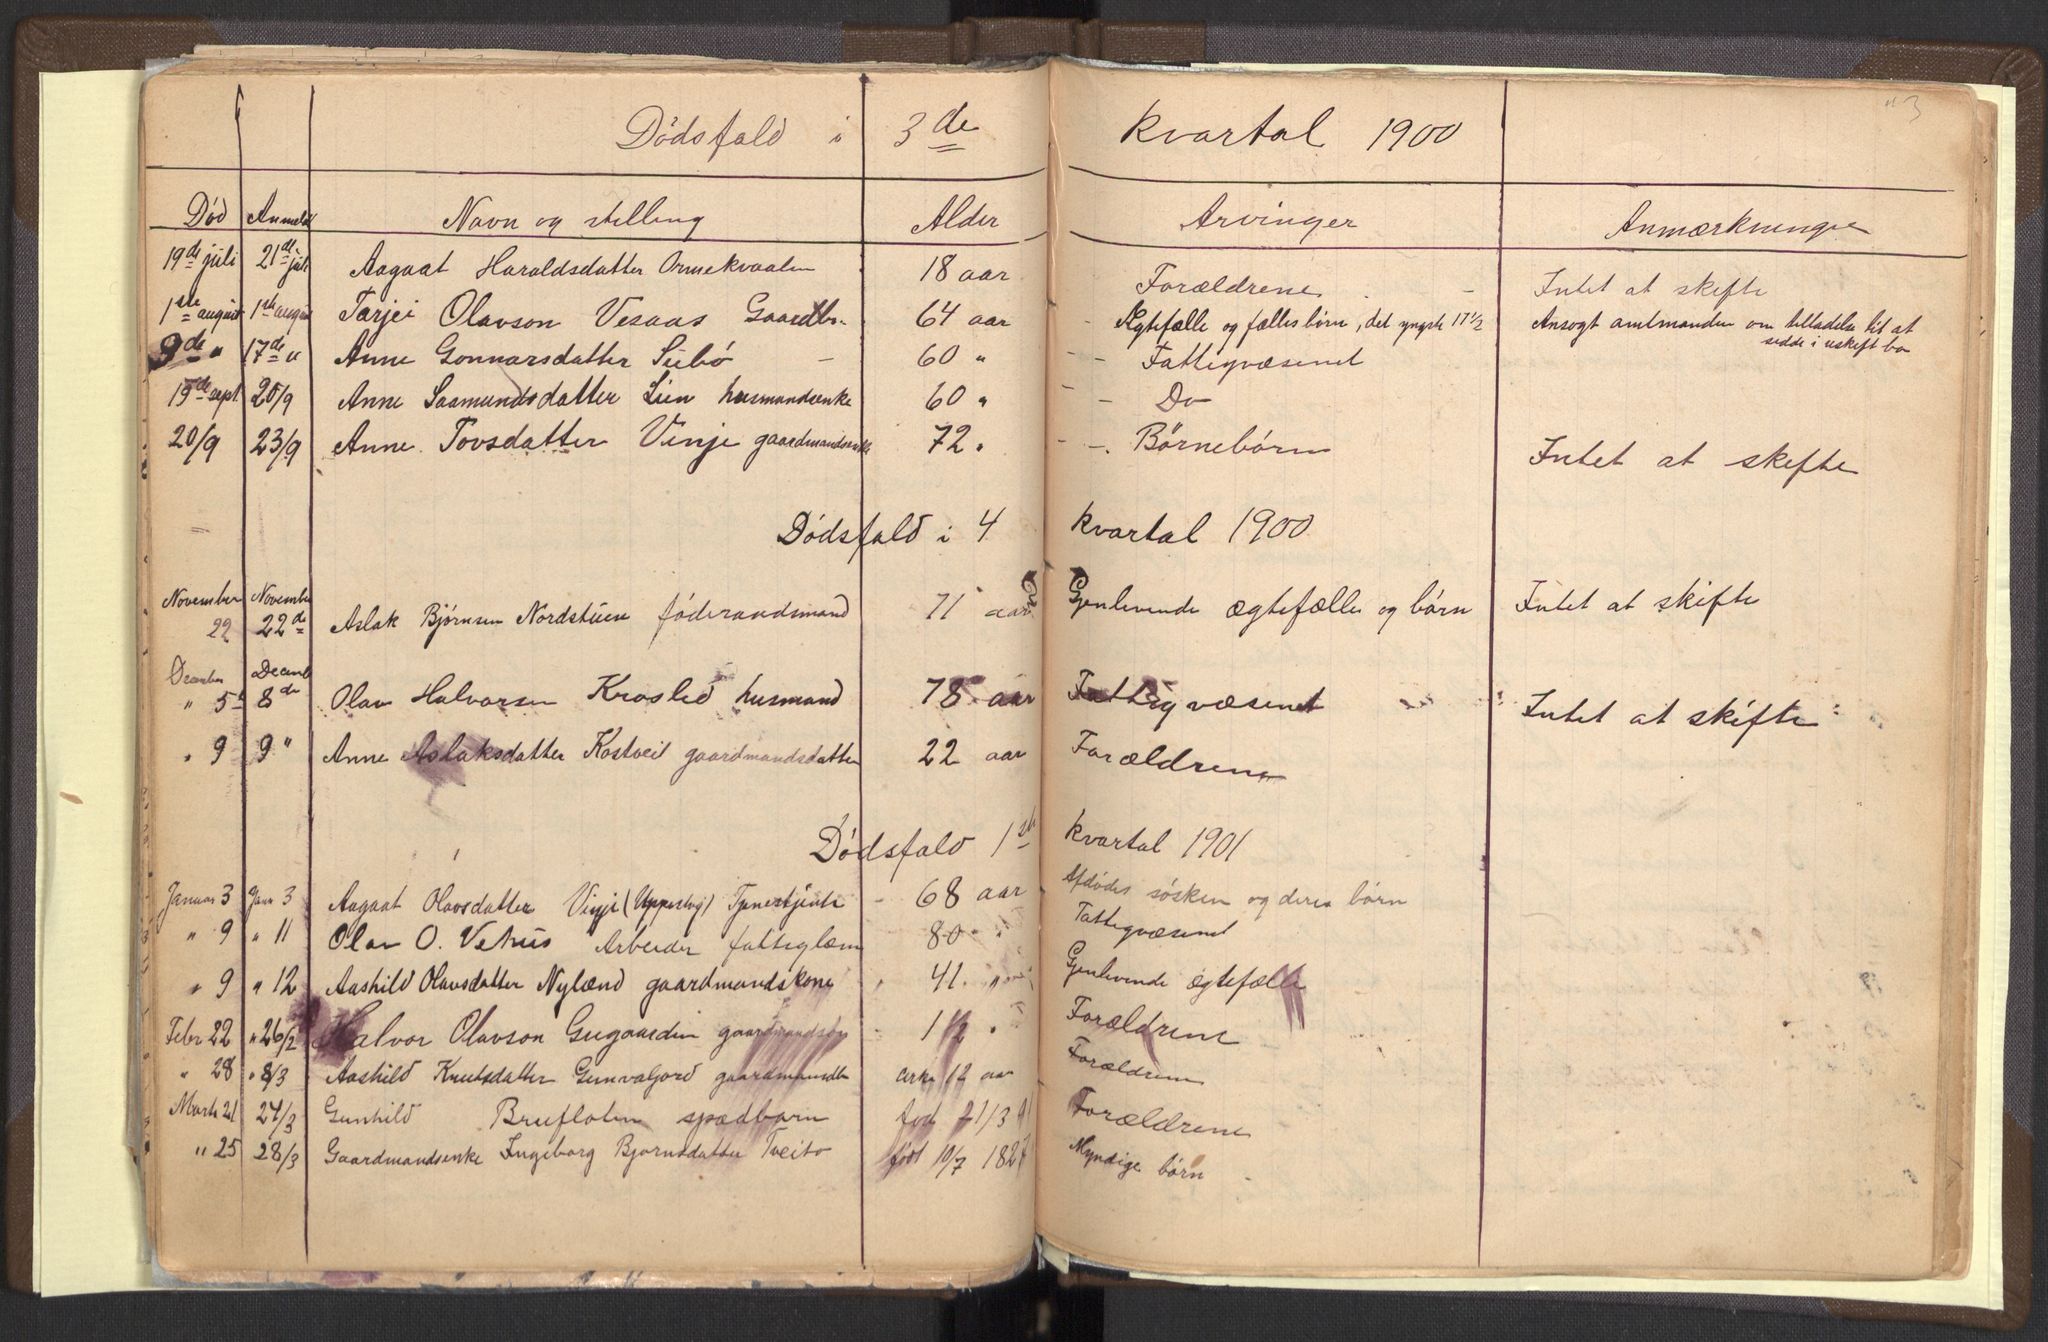 Dödsfald i 3de kvartal 1900
Död Anmeldt Navn og stilling Alder Arvinger Anmærkninger
19de juli 21de juli Aagaat Haraldsdatter Ormekvaalen 18 aar Forældrene Intet at skifte
1ste august 1ste august Tarjei Olavson Vesaas Gaardbr. 64 aar Ægtefælle og fælles börn, det yngste 17 1/2 Ansögt amtmanden om tilladelse til at
sidde i uskift bo
9de " 17de " Anne Gonnarsdatter Seebö 60 " Fattigvæsenet
19de sept. 20/9 Anne Saamundsdatter Lien husmandsenke 60 " Do
20/9 23/9 Anne Tovsdatter Vinje gaardmandsenke 72 " Börnebörn Intet at skifte
Dödsfald i 4 kvartal 1900
November November
22 22de Aslak Bjørnsen Nordstuen föderaadsmand 71 aar Gjenlevende ægtefælle og börn Intet at skifte
December Decemb
" 5te 8de Olav Halvorsen Kroslid husmand 78 aar Fattigvæsenet Intet at skifte
" 9 9 " Anne Aslaksdatter Kostveit gaardmandsdatter 22 aar Forældrene
Dödsfald 1ste kvartal 1901
Januar 3 Janr 3 Aagaat Olavsdatter Vinje (Uppestog) Tjenestjente 68 aar Afdödes sösken og deres börn
" 9 " 11 Olav O. Vehus Arbeider fattiglem 80 " Fattigvæsenet
" 9 " 12 Aashild Olavsdatter Nylænd gaardmandskone 41 " Gjenlevende ægtefælle
Febr 22 " 26/2 Halvor Olavson Gugaarden gaardmandssön 1 1/2 " Forældrene
" 28 " 8/3 Aashild Knutsdatter Gunvaljord gaardmandsdtr cirka 12 aar Forældrene
Marts 21 27/3 Gunhild Bruflaten spædbarn föd 21/3 Forældrene
" 25 28/3 Gaardmandsenke Ingeborg Bjornsdatter Tveito födt 10/7 1827 Myndige börn